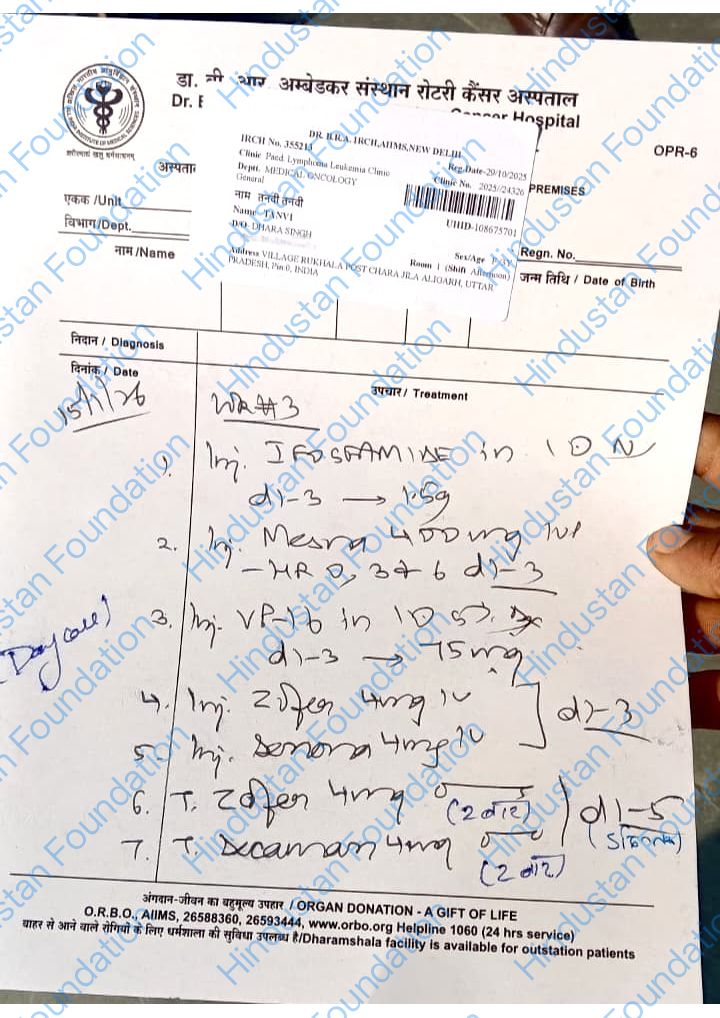 डा. बी. आर. अम्बेडकर संस्थान रोटरी कैंसर अस्पताल
Dr. B
Cancer Hospital
OPR-6
अस्पताल
PREMISES
DR. B.R.A. IRCH,AIIMS,NEW DELHI
IRCH No. 355213
Reg.Date-29/10/2025
Clinic Paed. Lymphoma Leukemia Clinic
Clinic No. 2025//24326
Deptt. MEDICAL ONCOLOGY
General
नाम तनवी तनवी
Name TANVI
UHID-108675701
D/O. DHARA SINGH
Sex/Age F/3Y
Room 1 (Shift Afternoon)
Address VILLAGE RUKHALA POST CHARA JILA ALIGARH, UTTAR
PRADESH, Pin:0, INDIA
एकक /Unit
विभाग/Dept.
नाम /Name
Regn. No.
जन्म तिथि / Date of Birth
निदान / Diagnosis
दिनांक / Date
उपचार/ Treatment
15/1/26
#3
1. Inj. IFOSFAMIDE in 1 D N
d1-3 → 1.5g
2. Inj. Mesna 400mg
- HR 0, 3 & 6 d1-3
3. Inj. VP-16 in
d1-3 → 75mg
(Day care)
4. Inj. Zofer 4mg IV
d1-3
5. Inj. 4mg IV
6. T. Zofer 4mg (2 बार)
d1-5
7. T. 4mg (2 बार)
अंगदान-जीवन का बहुमूल्य उपहार / ORGAN DONATION - A GIFT OF LIFE
O.R.B.O., AIIMS, 26588360, 26593444, www.orbo.org Helpline 1060 (24 hrs service)
बाहर से आने वाले रोगियों के लिए धर्मशाला की सुविधा उपलब्ध है/Dharamshala facility is available for outstation patients
Hindustan Foundation